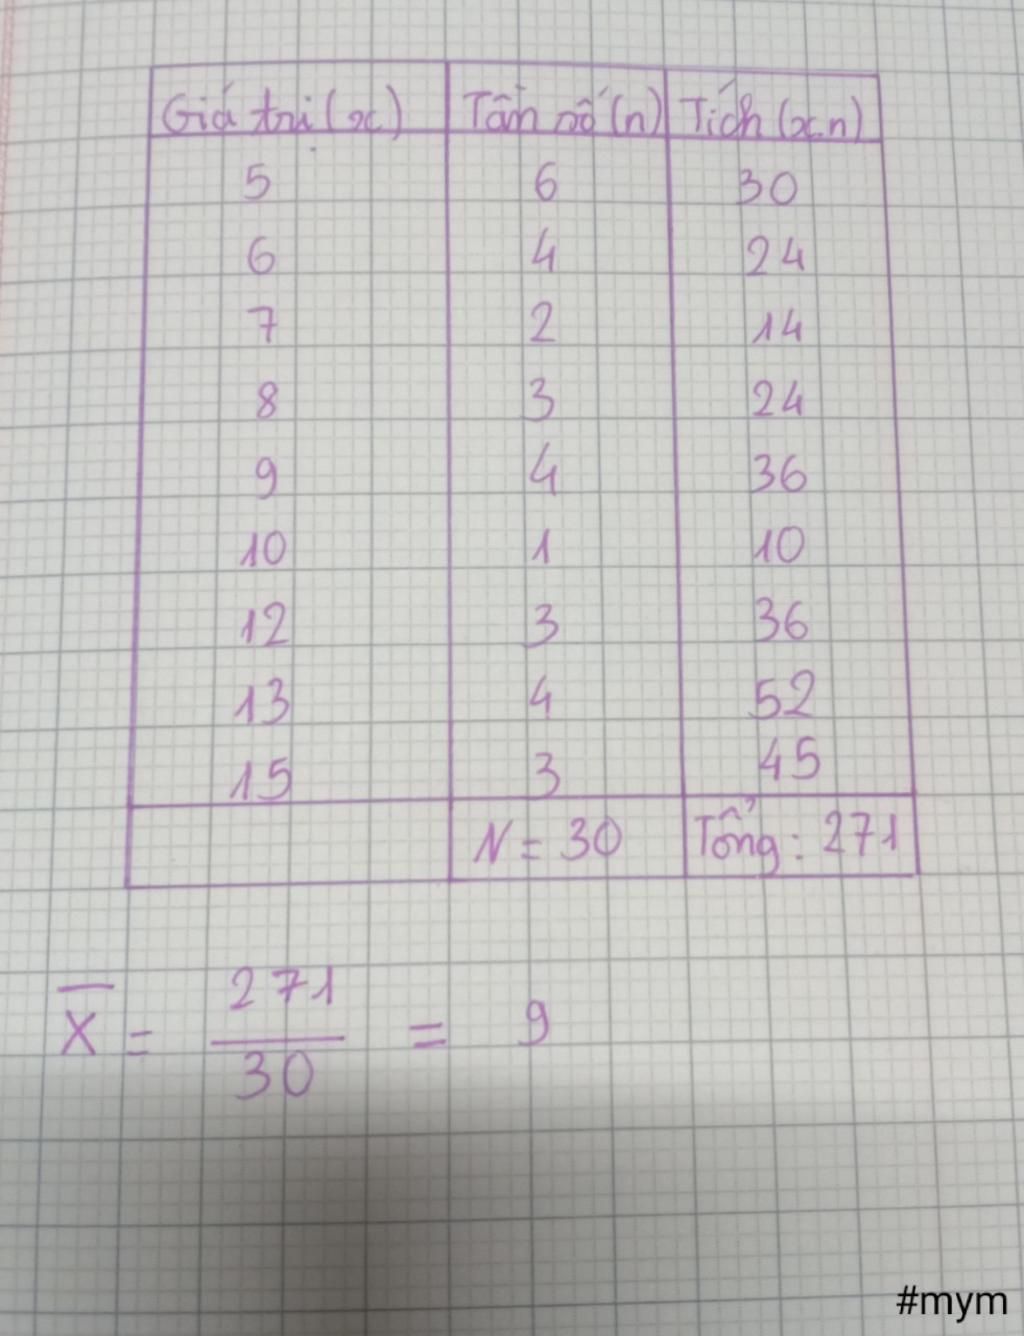 Giá trị (x) Tần số (n) Tích (x.n)
5 6 30
6 4 24
7 2 14
8 3 24
9 4 36
10 1 10
12 3 36
13 4 52
15 3 45
N = 30 Tổng : 271
X̅ = 271/30 = 9
#mym